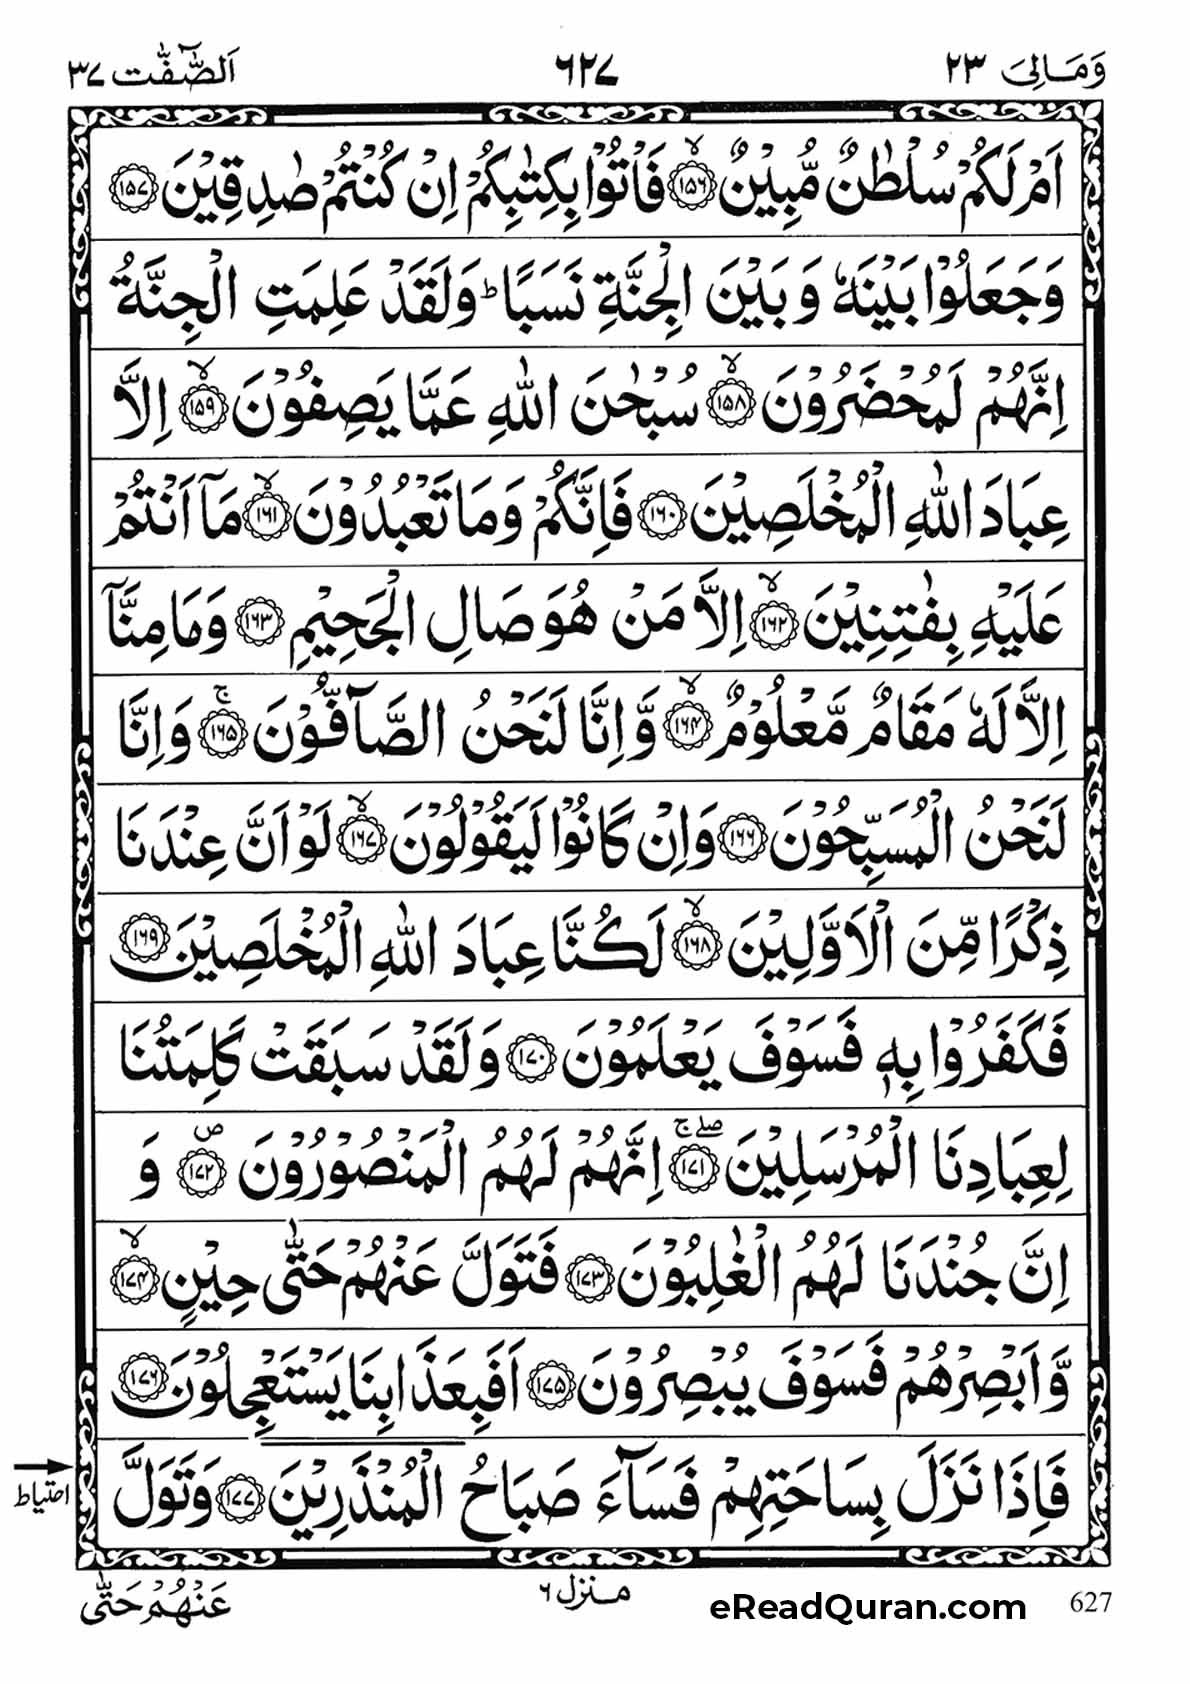 وَمَالِیَ ٢٣
٦٢٧
اَلصّٰٓفّٰت ٣٧
اَمْ لَكُمْ سُلْطٰنٌ مُّبِیْنٌ ۙ﴿۱۵۶﴾ فَاْتُوْا بِكِتٰبِكُمْ اِنْ كُنْتُمْ صٰدِقِیْنَ ﴿۱۵۷﴾
وَ جَعَلُوْا بَیْنَهٗ وَ بَیْنَ الْجِنَّةِ نَسَبًا ؕ وَ لَقَدْ عَلِمَتِ الْجِنَّةُ
اِنَّهُمْ لَمُحْضَرُوْنَ ۙ﴿۱۵۸﴾ سُبْحٰنَ اللّٰهِ عَمَّا یَصِفُوْنَ ۙ﴿۱۵۹﴾ اِلَّا
عِبَادَ اللّٰهِ الْمُخْلَصِیْنَ ﴿۱۶۰﴾ فَاِنَّكُمْ وَ مَا تَعْبُدُوْنَ ۙ﴿۱۶۱﴾ مَاۤ اَنْتُمْ
عَلَیْهِ بِفٰتِنِیْنَ ۙ﴿۱۶۲﴾ اِلَّا مَنْ هُوَ صَالِ الْجَحِیْمِ ﴿۱۶۳﴾ وَ مَا مِنَّاۤ
اِلَّا لَهٗ مَقَامٌ مَّعْلُوْمٌ ۙ﴿۱۶۴﴾ وَّ اِنَّا لَنَحْنُ الصَّآفُّوْنَ ۚ﴿۱۶۵﴾ وَ اِنَّا
لَنَحْنُ الْمُسَبِّحُوْنَ ﴿۱۶۶﴾ وَ اِنْ كَانُوْا لَیَقُوْلُوْنَ ۙ﴿۱۶۷﴾ لَوْ اَنَّ عِنْدَنَا
ذِكْرًا مِّنَ الْاَوَّلِیْنَ ۙ﴿۱۶۸﴾ لَكُنَّا عِبَادَ اللّٰهِ الْمُخْلَصِیْنَ ﴿۱۶۹﴾
فَكَفَرُوْا بِهٖ فَسَوْفَ یَعْلَمُوْنَ ﴿۱۷۰﴾ وَ لَقَدْ سَبَقَتْ كَلِمَتُنَا
لِعِبَادِنَا الْمُرْسَلِیْنَ ۖۚ﴿۱۷۱﴾ اِنَّهُمْ لَهُمُ الْمَنْصُوْرُوْنَ ۪﴿۱۷۲﴾ وَ
اِنَّ جُنْدَنَا لَهُمُ الْغٰلِبُوْنَ ﴿۱۷۳﴾ فَتَوَلَّ عَنْهُمْ حَتّٰی حِیْنٍ ۙ﴿۱۷۴﴾
وَّ اَبْصِرْهُمْ فَسَوْفَ یُبْصِرُوْنَ ﴿۱۷۵﴾ اَفَبِعَذَابِنَا یَسْتَعْجِلُوْنَ ﴿۱۷۶﴾
فَاِذَا نَزَلَ بِسَاحَتِهِمْ فَسَآءَ صَبَاحُ الْمُنْذَرِیْنَ ﴿۱۷۷﴾ وَ تَوَلَّ
احتیاط
عَنْهُمْ حَتّٰی
منزل ٦
eReadQuran.com
627